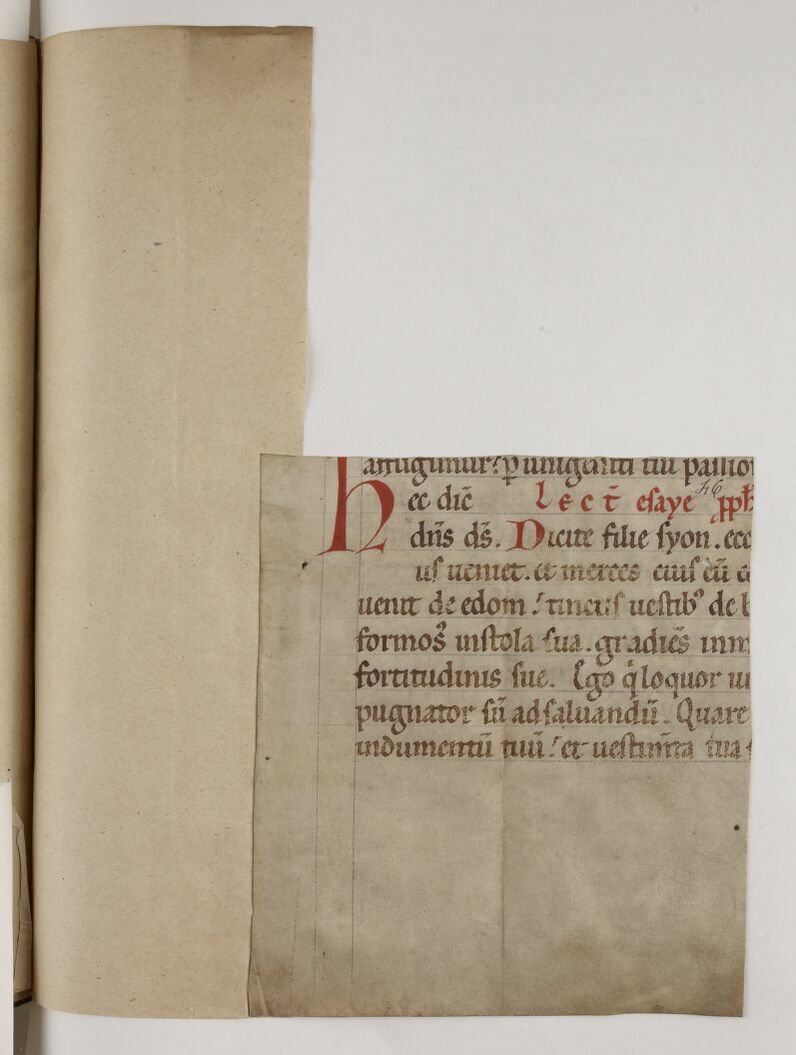 affligimur: ꝑ unigeniti tui passio
46
Hec dic̄ Lect̄ esaye ꝓph
dn̄s ds̄. Dicite filie syon. ecc
us ueniet. et merces eius cū e
uenit de edom: tinctis uestibꝰ de b
formosꝰ in stola sua. gradiēs in m
fortitudinis sue. Ego q̇ loquor iu
pugnator sū ad saluandū. Quare
indumentū tuū: et uestim̄ta tua